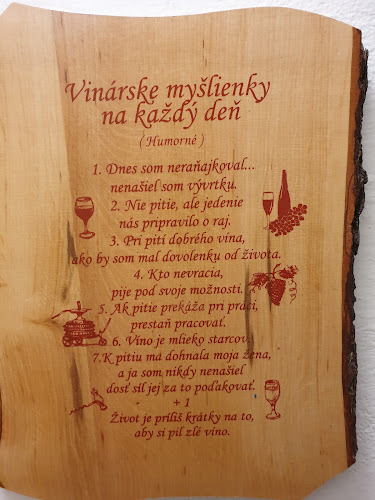 Vinárske myšlienky
na každý deň
( Humorné )
1. Dnes som neraňajkoval...
nenašiel som vývrtku.
2. Nie pitie, ale jedenie
nás pripravilo o raj.
3. Pri pití dobrého vína,
ako by som mal dovolenku od života.
4. Kto nevracia,
pije pod svoje možnosti.
5. Ak pitie prekáža pri práci,
prestaň pracovať.
6. Víno je mlieko starcov.
7.K pitiu ma dohnala moja žena,
a ja som nikdy nenašiel
dosť síl jej za to poďakovať.
+ 1
Život je príliš krátky na to,
aby si pil zlé víno.